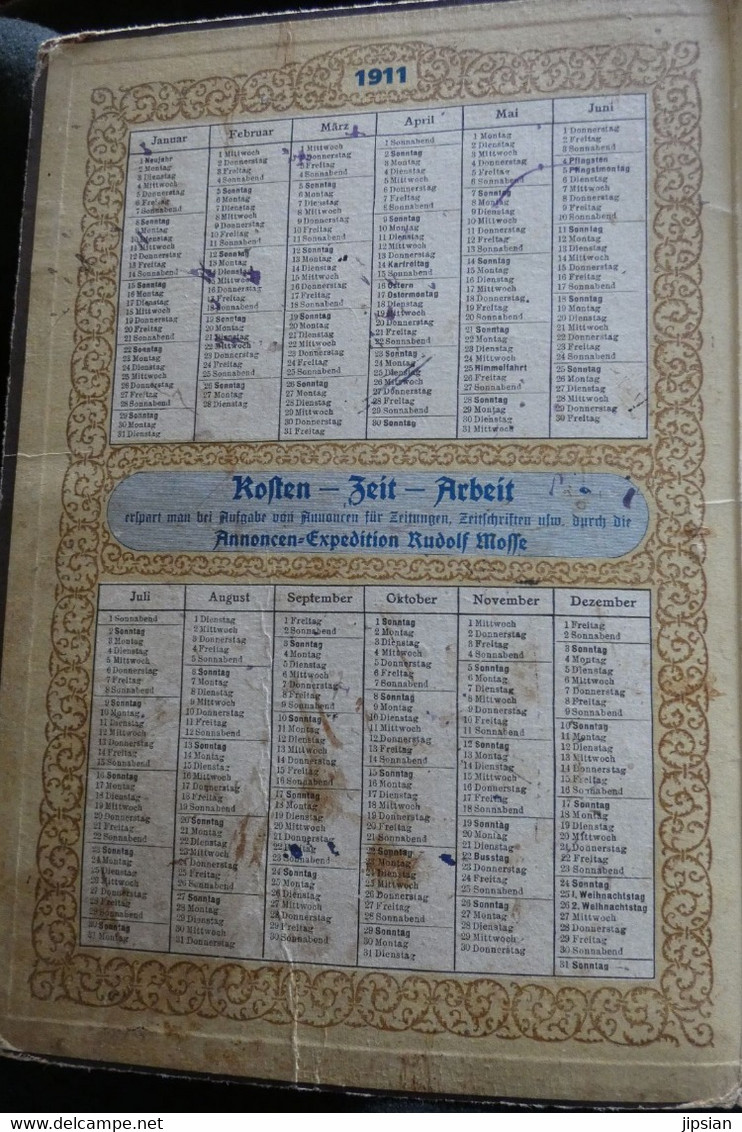 1911
Januar
1 Neujahr
2 Montag
3 Dienstag
4 Mittwoch
5 Donnerstag
6 Freitag
7 Sonnabend
8 Sonntag
9 Montag
10 Dienstag
11 Mittwoch
12 Donnerstag
13 Freitag
14 Sonnabend
15 Sonntag
16 Montag
17 Dienstag
18 Mittwoch
19 Donnerstag
20 Freitag
21 Sonnabend
22 Sonntag
23 Montag
24 Dienstag
25 Mittwoch
26 Donnerstag
27 Freitag
28 Sonnabend
29 Sonntag
30 Montag
31 Dienstag
Februar
1 Mittwoch
2 Donnerstag
3 Freitag
4 Sonnabend
5 Sonntag
6 Montag
7 Dienstag
8 Mittwoch
9 Donnerstag
10 Freitag
11 Sonnabend
12 Sonntag
13 Montag
14 Dienstag
15 Mittwoch
16 Donnerstag
17 Freitag
18 Sonnabend
19 Sonntag
20 Montag
21 Dienstag
22 Mittwoch
23 Donnerstag
24 Freitag
25 Sonnabend
26 Sonntag
27 Montag
28 Dienstag
März
1 Mittwoch
2 Donnerstag
3 Freitag
4 Sonnabend
5 Sonntag
6 Montag
7 Dienstag
8 Mittwoch
9 Donnerstag
10 Freitag
11 Sonnabend
12 Sonntag
13 Montag
14 Dienstag
15 Mittwoch
16 Donnerstag
17 Freitag
18 Sonnabend
19 Sonntag
20 Montag
21 Dienstag
22 Mittwoch
23 Donnerstag
24 Freitag
25 Sonnabend
26 Sonntag
27 Montag
28 Dienstag
29 Mittwoch
30 Donnerstag
31 Freitag
April
1 Sonnabend
2 Sonntag
3 Montag
4 Dienstag
5 Mittwoch
6 Donnerstag
7 Freitag
8 Sonnabend
9 Sonntag
10 Montag
11 Dienstag
12 Mittwoch
13 Donnerstag
14 Karfreitag
15 Sonnabend
16 Ostern
17 Ostermontag
18 Dienstag
19 Mittwoch
20 Donnerstag
21 Freitag
22 Sonnabend
23 Sonntag
24 Montag
25 Dienstag
26 Mittwoch
27 Donnerstag
28 Freitag
29 Sonnabend
30 Sonntag
Mai
1 Montag
2 Dienstag
3 Mittwoch
4 Donnerstag
5 Freitag
6 Sonnabend
7 Sonntag
8 Montag
9 Dienstag
10 Mittwoch
11 Donnerstag
12 Freitag
13 Sonnabend
14 Sonntag
15 Montag
16 Dienstag
17 Mittwoch
18 Donnerstag
19 Freitag
20 Sonnabend
21 Sonntag
22 Montag
23 Dienstag
24 Mittwoch
25 Himmelfahrt
26 Freitag
27 Sonnabend
28 Sonntag
29 Montag
30 Dienstag
31 Mittwoch
Juni
1 Donnerstag
2 Freitag
3 Sonnabend
4 Pfingsten
5 Pfingstmontag
6 Dienstag
7 Mittwoch
8 Donnerstag
9 Freitag
10 Sonnabend
11 Sonntag
12 Montag
13 Dienstag
14 Mittwoch
15 Donnerstag
16 Freitag
17 Sonnabend
18 Sonntag
19 Montag
20 Dienstag
21 Mittwoch
22 Donnerstag
23 Freitag
24 Sonnabend
25 Sonntag
26 Montag
27 Dienstag
28 Mittwoch
29 Donnerstag
30 Freitag
Kosten – Zeit – Arbeit
erspart man bei Aufgabe von Annoncen für Zeitungen, Zeitschriften usw. durch die
Annoncen-Expedition Rudolf Mosse
Juli
1 Sonnabend
2 Sonntag
3 Montag
4 Dienstag
5 Mittwoch
6 Donnerstag
7 Freitag
8 Sonnabend
9 Sonntag
10 Montag
11 Dienstag
12 Mittwoch
13 Donnerstag
14 Freitag
15 Sonnabend
16 Sonntag
17 Montag
18 Dienstag
19 Mittwoch
20 Donnerstag
21 Freitag
22 Sonnabend
23 Sonntag
24 Montag
25 Dienstag
26 Mittwoch
27 Donnerstag
28 Freitag
29 Sonnabend
30 Sonntag
31 Montag
August
1 Dienstag
2 Mittwoch
3 Donnerstag
4 Freitag
5 Sonnabend
6 Sonntag
7 Montag
8 Dienstag
9 Mittwoch
10 Donnerstag
11 Freitag
12 Sonnabend
13 Sonntag
14 Montag
15 Dienstag
16 Mittwoch
17 Donnerstag
18 Freitag
19 Sonnabend
20 Sonntag
21 Montag
22 Dienstag
23 Mittwoch
24 Donnerstag
25 Freitag
26 Sonnabend
27 Sonntag
28 Montag
29 Dienstag
30 Mittwoch
31 Donnerstag
September
1 Freitag
2 Sonnabend
3 Sonntag
4 Montag
5 Dienstag
6 Mittwoch
7 Donnerstag
8 Freitag
9 Sonnabend
10 Sonntag
11 Montag
12 Dienstag
13 Mittwoch
14 Donnerstag
15 Freitag
16 Sonnabend
17 Sonntag
18 Montag
19 Dienstag
20 Mittwoch
21 Donnerstag
22 Freitag
23 Sonnabend
24 Sonntag
25 Montag
26 Dienstag
27 Mittwoch
28 Donnerstag
29 Freitag
30 Sonnabend
Oktober
1 Sonntag
2 Montag
3 Dienstag
4 Mittwoch
5 Donnerstag
6 Freitag
7 Sonnabend
8 Sonntag
9 Montag
10 Dienstag
11 Mittwoch
12 Donnerstag
13 Freitag
14 Sonnabend
15 Sonntag
16 Montag
17 Dienstag
18 Mittwoch
19 Donnerstag
20 Freitag
21 Sonnabend
22 Sonntag
23 Montag
24 Dienstag
25 Mittwoch
26 Donnerstag
27 Freitag
28 Sonnabend
29 Sonntag
30 Montag
31 Dienstag
November
1 Mittwoch
2 Donnerstag
3 Freitag
4 Sonnabend
5 Sonntag
6 Montag
7 Dienstag
8 Mittwoch
9 Donnerstag
10 Freitag
11 Sonnabend
12 Sonntag
13 Montag
14 Dienstag
15 Mittwoch
16 Donnerstag
17 Freitag
18 Sonnabend
19 Sonntag
20 Montag
21 Dienstag
22 Busstag
23 Donnerstag
24 Freitag
25 Sonnabend
26 Sonntag
27 Montag
28 Dienstag
29 Mittwoch
30 Donnerstag
Dezember
1 Freitag
2 Sonnabend
3 Sonntag
4 Montag
5 Dienstag
6 Mittwoch
7 Donnerstag
8 Freitag
9 Sonnabend
10 Sonntag
11 Montag
12 Dienstag
13 Mittwoch
14 Donnerstag
15 Freitag
16 Sonnabend
17 Sonntag
18 Montag
19 Dienstag
20 Mittwoch
21 Donnerstag
22 Freitag
23 Sonnabend
24 Sonntag
25 1. Weihnachtstag
26 2. Weihnachtstag
27 Mittwoch
28 Donnerstag
29 Freitag
30 Sonnabend
31 Sonntag
delcampe.net
jipsian